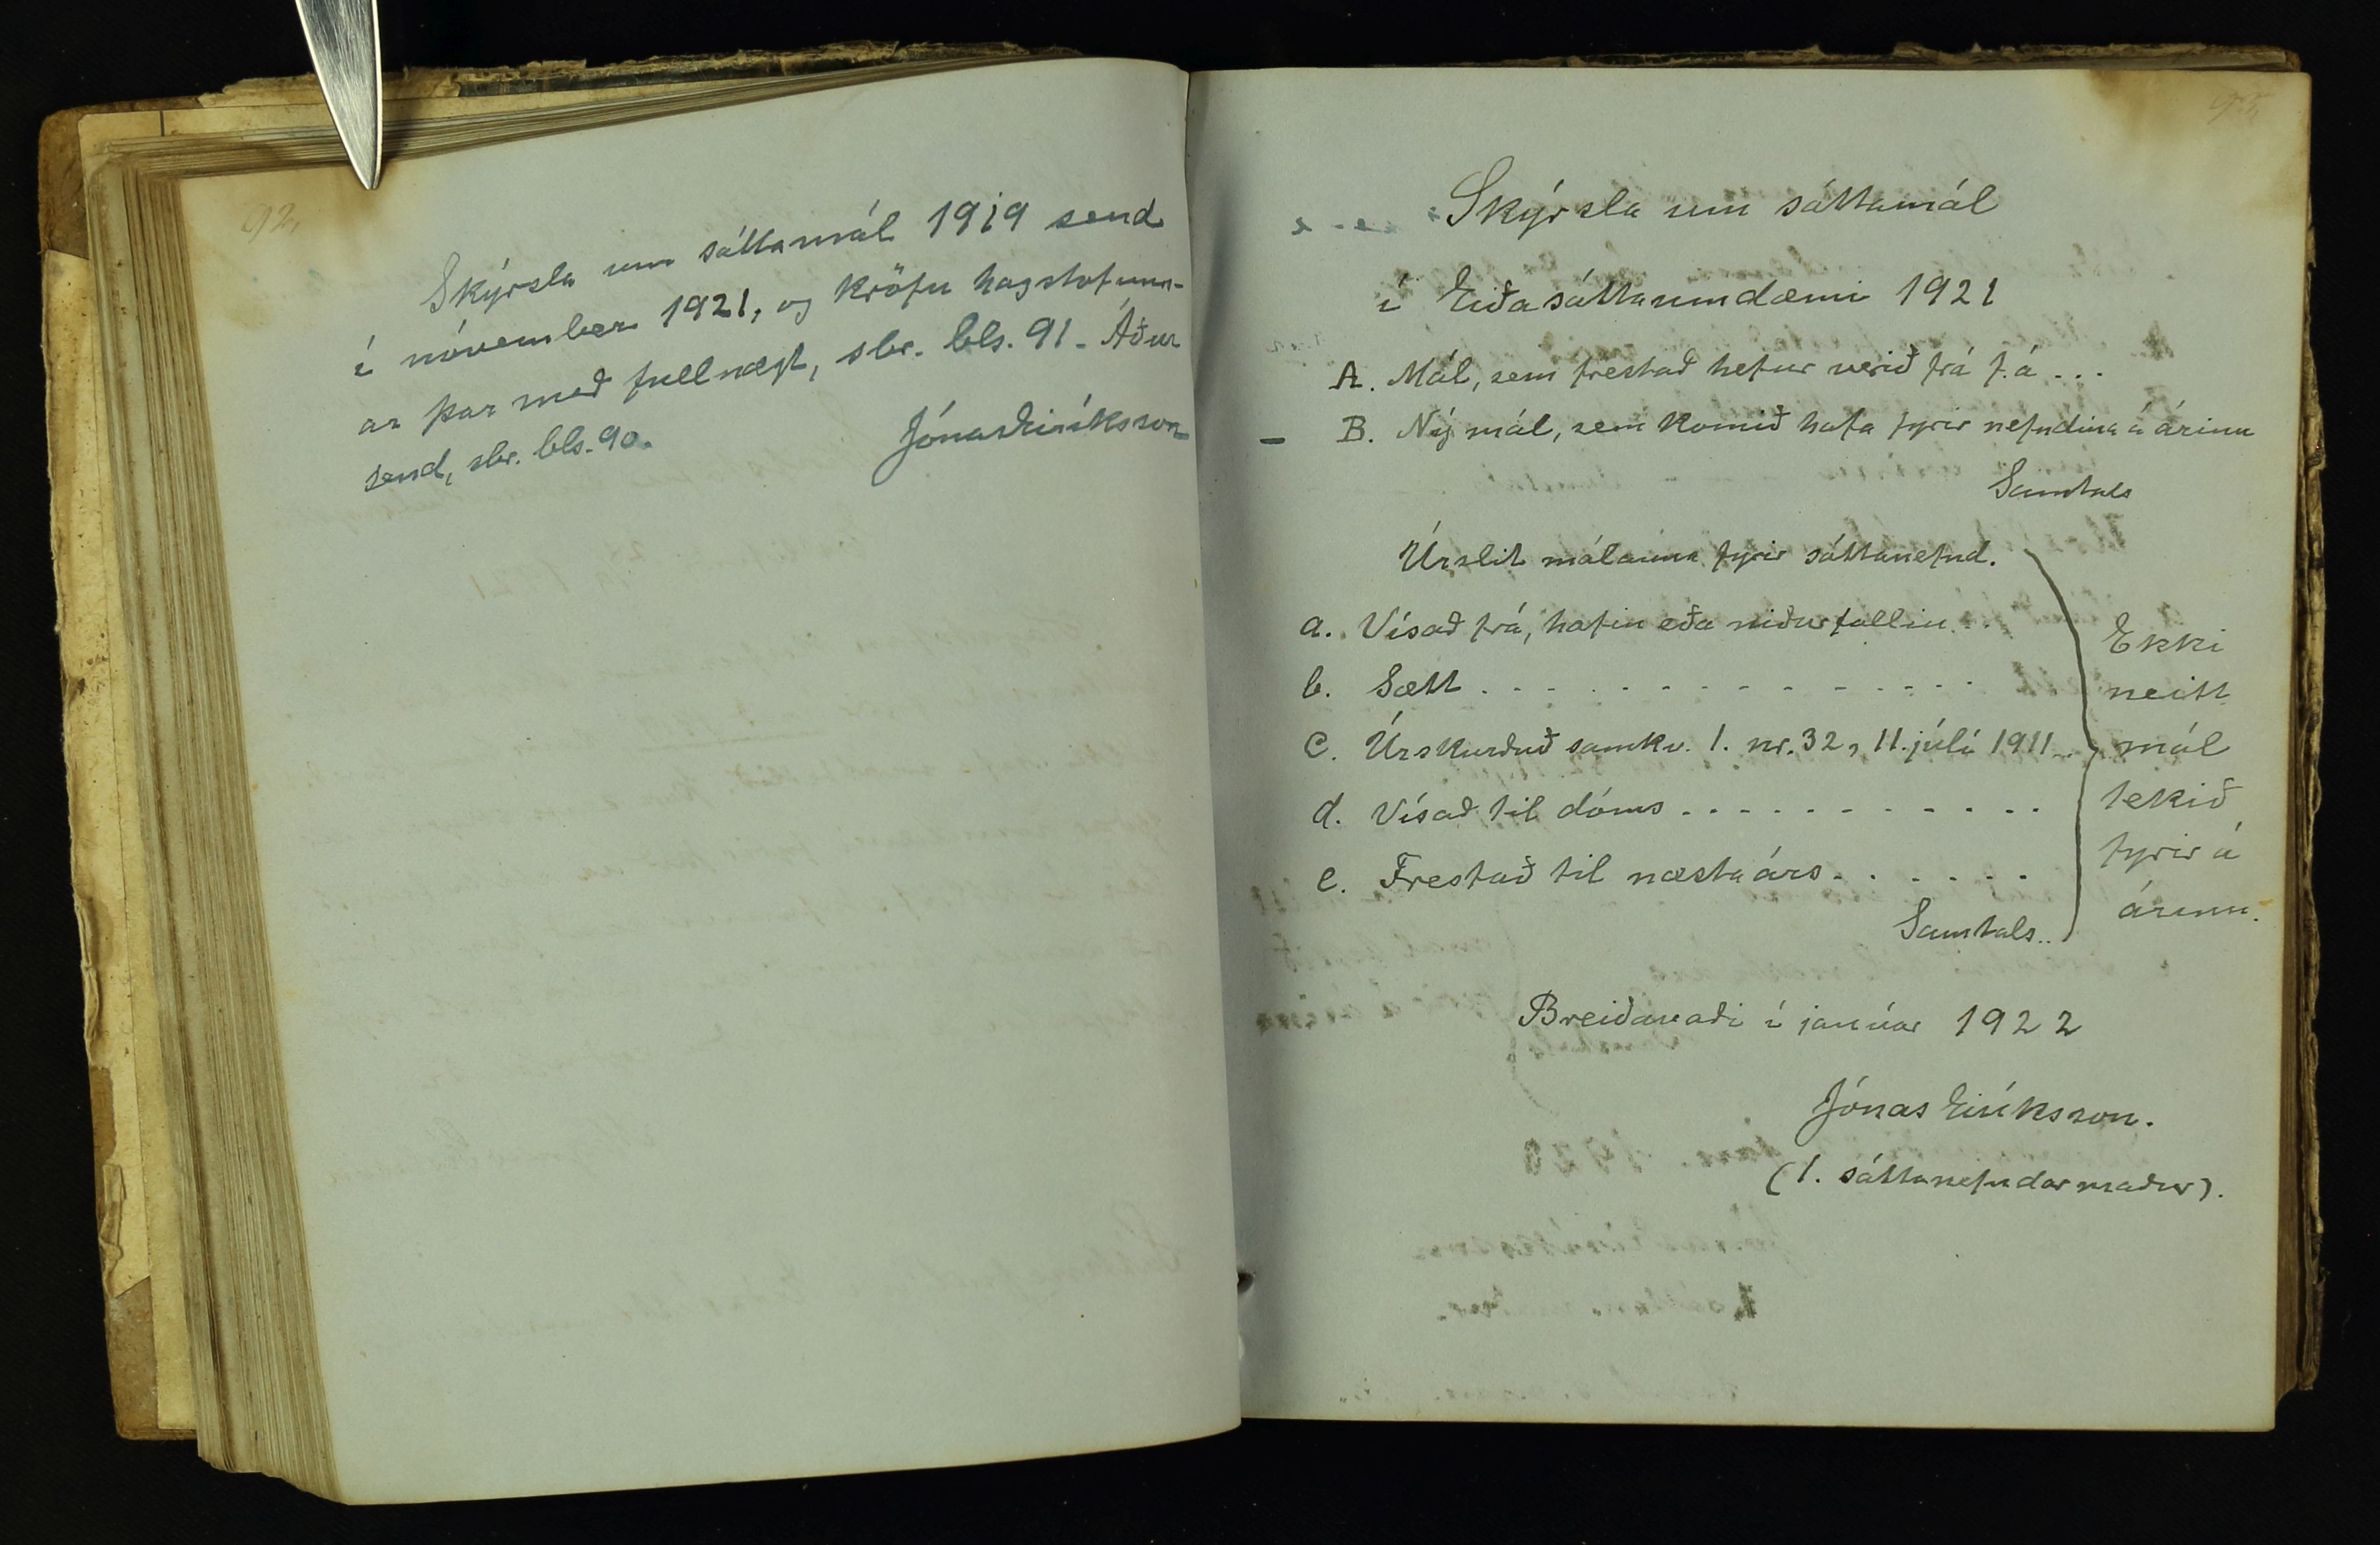 92.
Skýrsla um sáttamál 1919 send
í nóvember 1921, og kröfu hagstofunn-
ar þar með fullnægt, sbr. bls. 91. Áður
send, sbr. bls. 90.
Jónas Eiríksson
93.
Skýrsla um sáttamál
í Eiðasáttaumdæmi 1921
A. Mál, sem frestað hefur verið frá f. á ...
B. Ný mál, sem komið hafa fyrir nefndina á árinu
Samtals
Úrslit málanna fyrir sáttanefnd.
a. Vísað frá, hafin eða niðurfallin ..
b. Sætt . . . . . . . . . . . . . .
c. Úrskurðuð samkv. l. nr. 32, 11. júlí 1911 ..
d. Vísað til dóms . . . . . . . . . . . .
e. Frestað til næsta árs . . . . . .
Samtals ..
Ekki
neitt
mál
tekið
fyrir á
árinu.
Breiðavaði í janúar 1922
Jónas Eiríksson.
(1. sáttanefndarmaður).